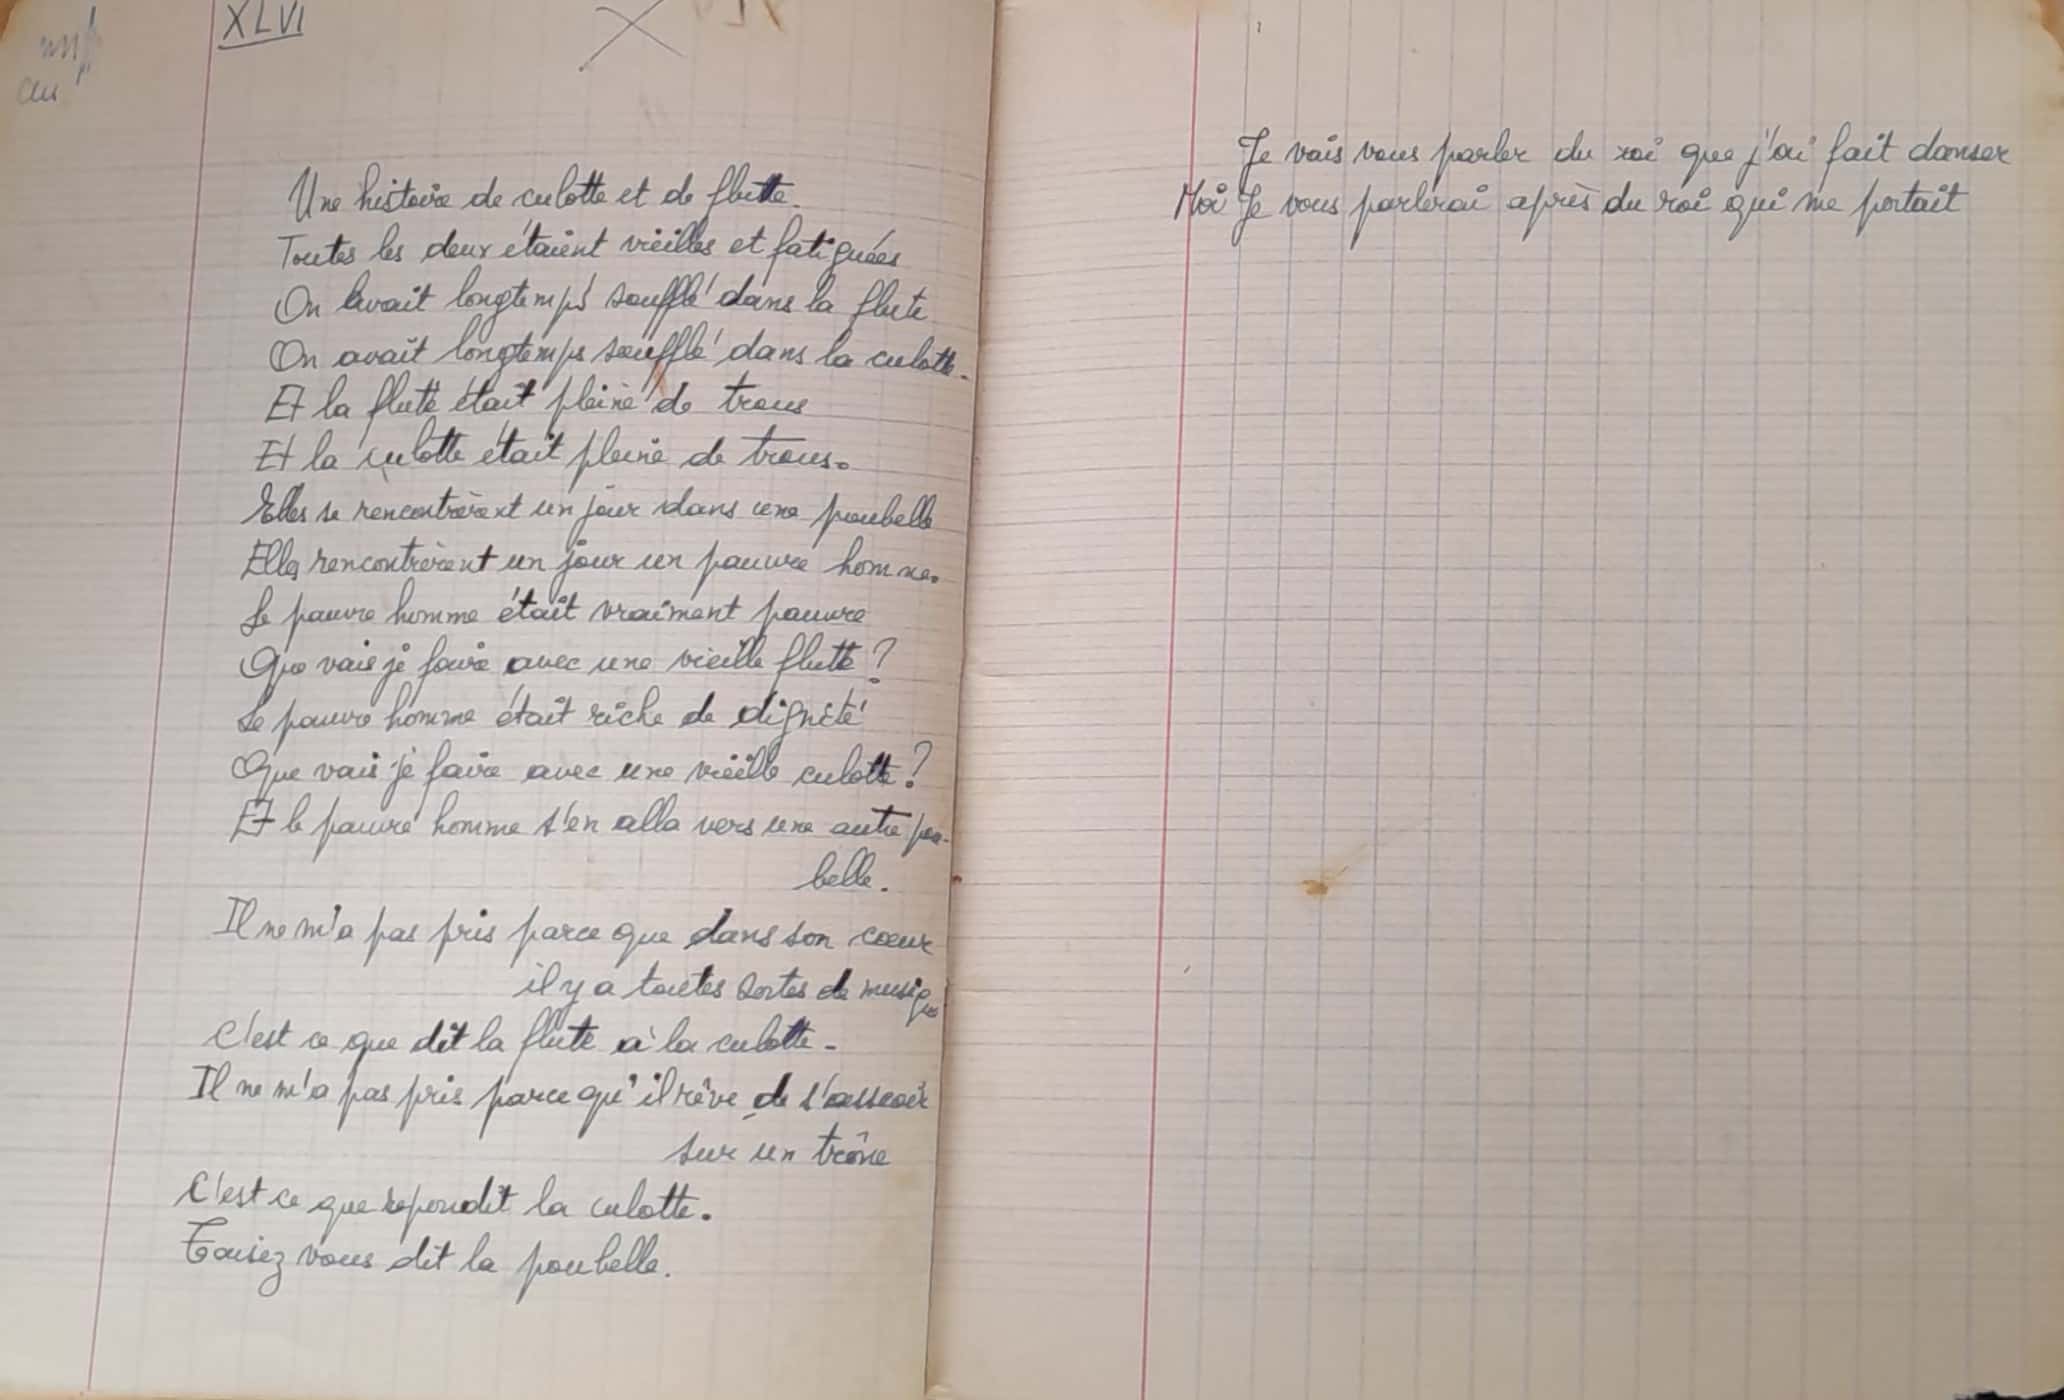 XLVI
Une histoire de culotte et de flutte.
Toutes les deux étaient vieilles et fatiguées
On avait longtemps soufflé dans la flute
On avait longtemps soufflé dans la culotte.
Et la flutte était pleine de trous
Et la culotte était pleine de trous.
Elles se rencontrèrent un jour dans une poubelle
Elles rencontrèrent un jour un pauvre homme.
Le pauvre homme était vraiment pauvre
Que vais je faire avec une vieille flutte ?
Le pauvre homme était riche de dignité
Que vais je faire avec une vieille culotte ?
Et le pauvre homme s'en alla vers une autre pou-
belle.
Il ne m'a pas pris parce que dans son cœur
il y a toutes sortes de musiques
C'est ce que dit la flute à la culotte.
Il ne m'a pas pris parce qu'il rêve de s'asseoir
sur un trône
C'est ce que repondit la culotte.
Taisez vous dit la poubelle.
Je vais vous parler du roi que j'ai fait danser
Moi Je vous parlerai après du roi qui me portait